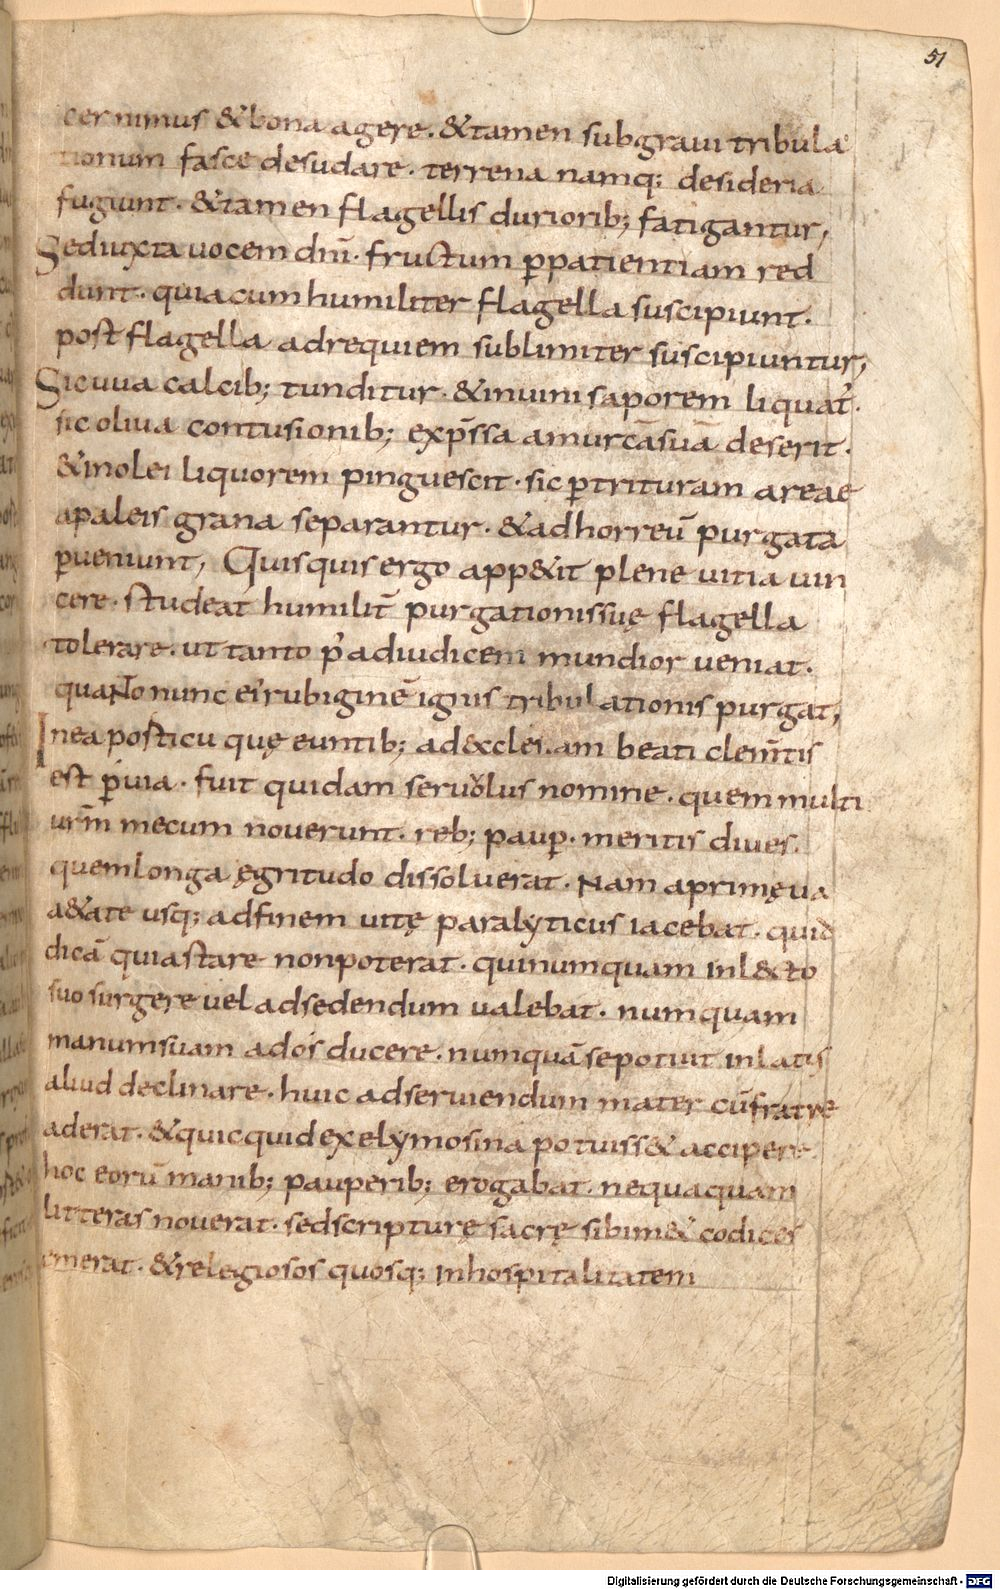 51
cernimus & bona agere. & tamen sub graui tribula
tionum fasce desudare. terrena namq; desideria
fugiunt. & tamen flagellis duriorib; fatigantur,
Sed iuxta uocem dnī. fructum p̱ patientiam red
dunt. quia cum humiliter flagella suscipiunt.
post flagella ad requiem sublimiter suscipiuntur,
Sic uua calcib; tunditur. & in uini saporem liquat᾽.
sic oliua contusionib; exp̄ssa amurcā suā deserit.
& in olei liquorem pinguescit. sic p̱ trituram areae
a paleis grana separantur. & ad horreū purgata
p̱ueniunt, Quisquis ergo app&it plene uitia uin
cere. studeat humilit̄ purgationis suę flagella
tolerare. ut tanto p᾽ ad iudicem mundior ueniat.
quaNto nunc ei᾽ rubiginē ignis tribulationis purgat,
In ea posticu quę euntib; ad &cclesiam beati clem̄tis
est p̱uia. fuit quidam seruolus nomine. quem multi
urm̄ mecum nouerunt. reb; paup̱. meritis diues.
quem longa ęgritudo dissoluerat. Nam a primęua
a&ate usq; ad finem uitę paralyticus iacebat. quid
dicā quia stare non poterat. qui numquam in l&cto
suo surgere uel ad sedendum ualebat. numquam
manum suam ad os ducere. numquā se potuit in latis
aliud declinare. huic ad seruiendum mater cū fratre
aderat. & quicquid ex elymosina potuiss& accipere.
hoc eorū manib; pauperib; erogabat. nequaquam
litteras nouerat. sed scripturę sacrę sibim& codices
emerat. & relegiosos quosq; in hospitalitatem
Digitalisierung gefördert durch die Deutsche Forschungsgemeinschaft - DFG